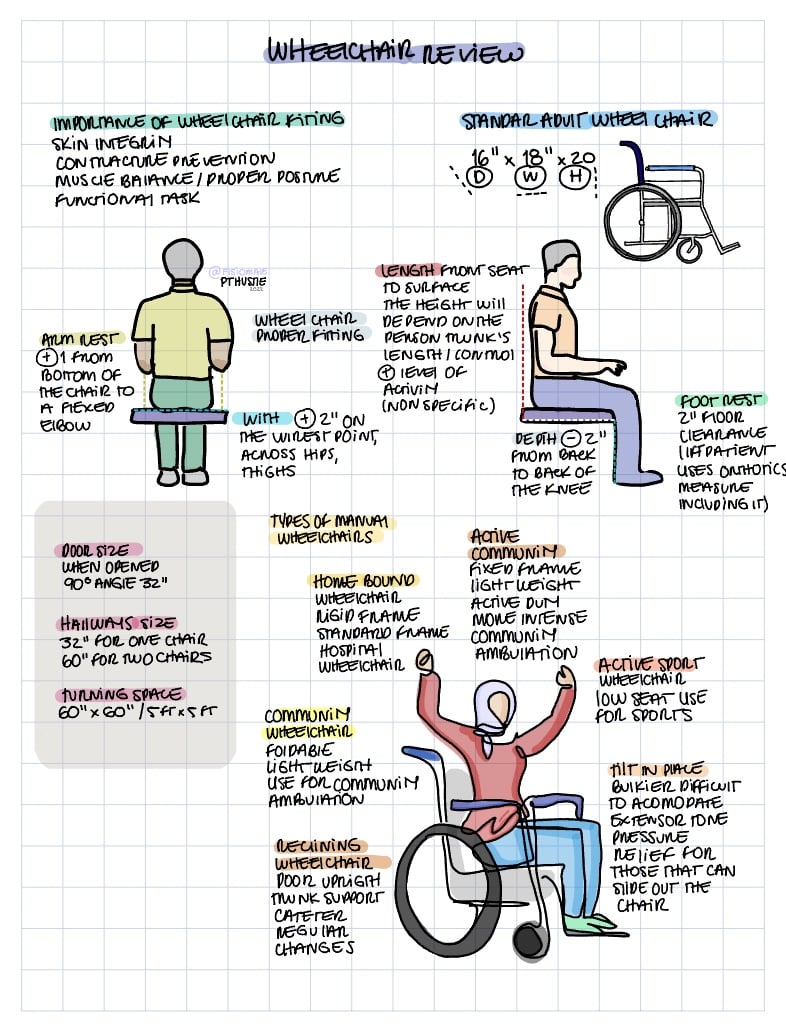 WHEELCHAIR REVIEW
IMPORTANCE OF WHEELCHAIR FITTING
SKIN INTEGRITY
CONTRACTURE PREVENTION
MUSCLE BALANCE / PROPER POSTURE
FUNCTIONAL TASK
STANDAR ADULT WHEELCHAIR
16" x 18" x 20
D W H
@FISIOMAPS
PTHUSTLE
2022
ARM REST
+ 1 FROM
BOTTOM OF
THE CHAIR TO
A FLEXED
ELBOW
WHEELCHAIR
PROPER FITTING
WITH + 2" ON
THE WIREST POINT,
ACROSS HIPS,
THIGHS
LENGTH FRONT SEAT
TO SURFACE
THE HEIGHT WILL
DEPEND ON THE
PERSON TRUNK'S
LENGTH / CONTROL
+ LEVEL OF
ACTIVITY
(NON SPECIFIC)
DEPTH - 2"
FROM BACK
TO BACK OF
THE KNEE
FOOT REST
2" FLOOR
CLEARANCE
(IF PATIENT
USES ORTHOTICS
MEASURE
INCLUDING IT)
DOOR SIZE
WHEN OPENED
90° ANGLE 32"
HALLWAYS SIZE
32" FOR ONE CHAIR
60" FOR TWO CHAIRS
TURNING SPACE
60" x 60" / 5 FT x 5 FT
TYPES OF MANUAL
WHEELCHAIRS
HOME BOUND
WHEELCHAIR
RIGID FRAME
STANDARD FRAME
HOSPITAL
WHEELCHAIR
ACTIVE
COMMUNITY
FIXED FRAME
LIGHT WEIGHT
ACTIVE DUTY
MORE INTENSE
COMMUNITY
AMBULATION
ACTIVE SPORT
WHEELCHAIR
LOW SEAT USE
FOR SPORTS
COMMUNITY
WHEELCHAIR
FOLDABLE
LIGHT WEIGHT
USE FOR COMMUNITY
AMBULATION
TILT IN PLACE
BULKIER DIFFICULT
TO ACOMODATE
EXTENSOR TONE
PRESSURE
RELIEF FOR
THOSE THAT CAN
SLIDE OUT THE
CHAIR
RECLINING
WHEELCHAIR
POOR UPRIGTH
TRUNK SUPPORT
CATETER
REGULAR
CHANGES